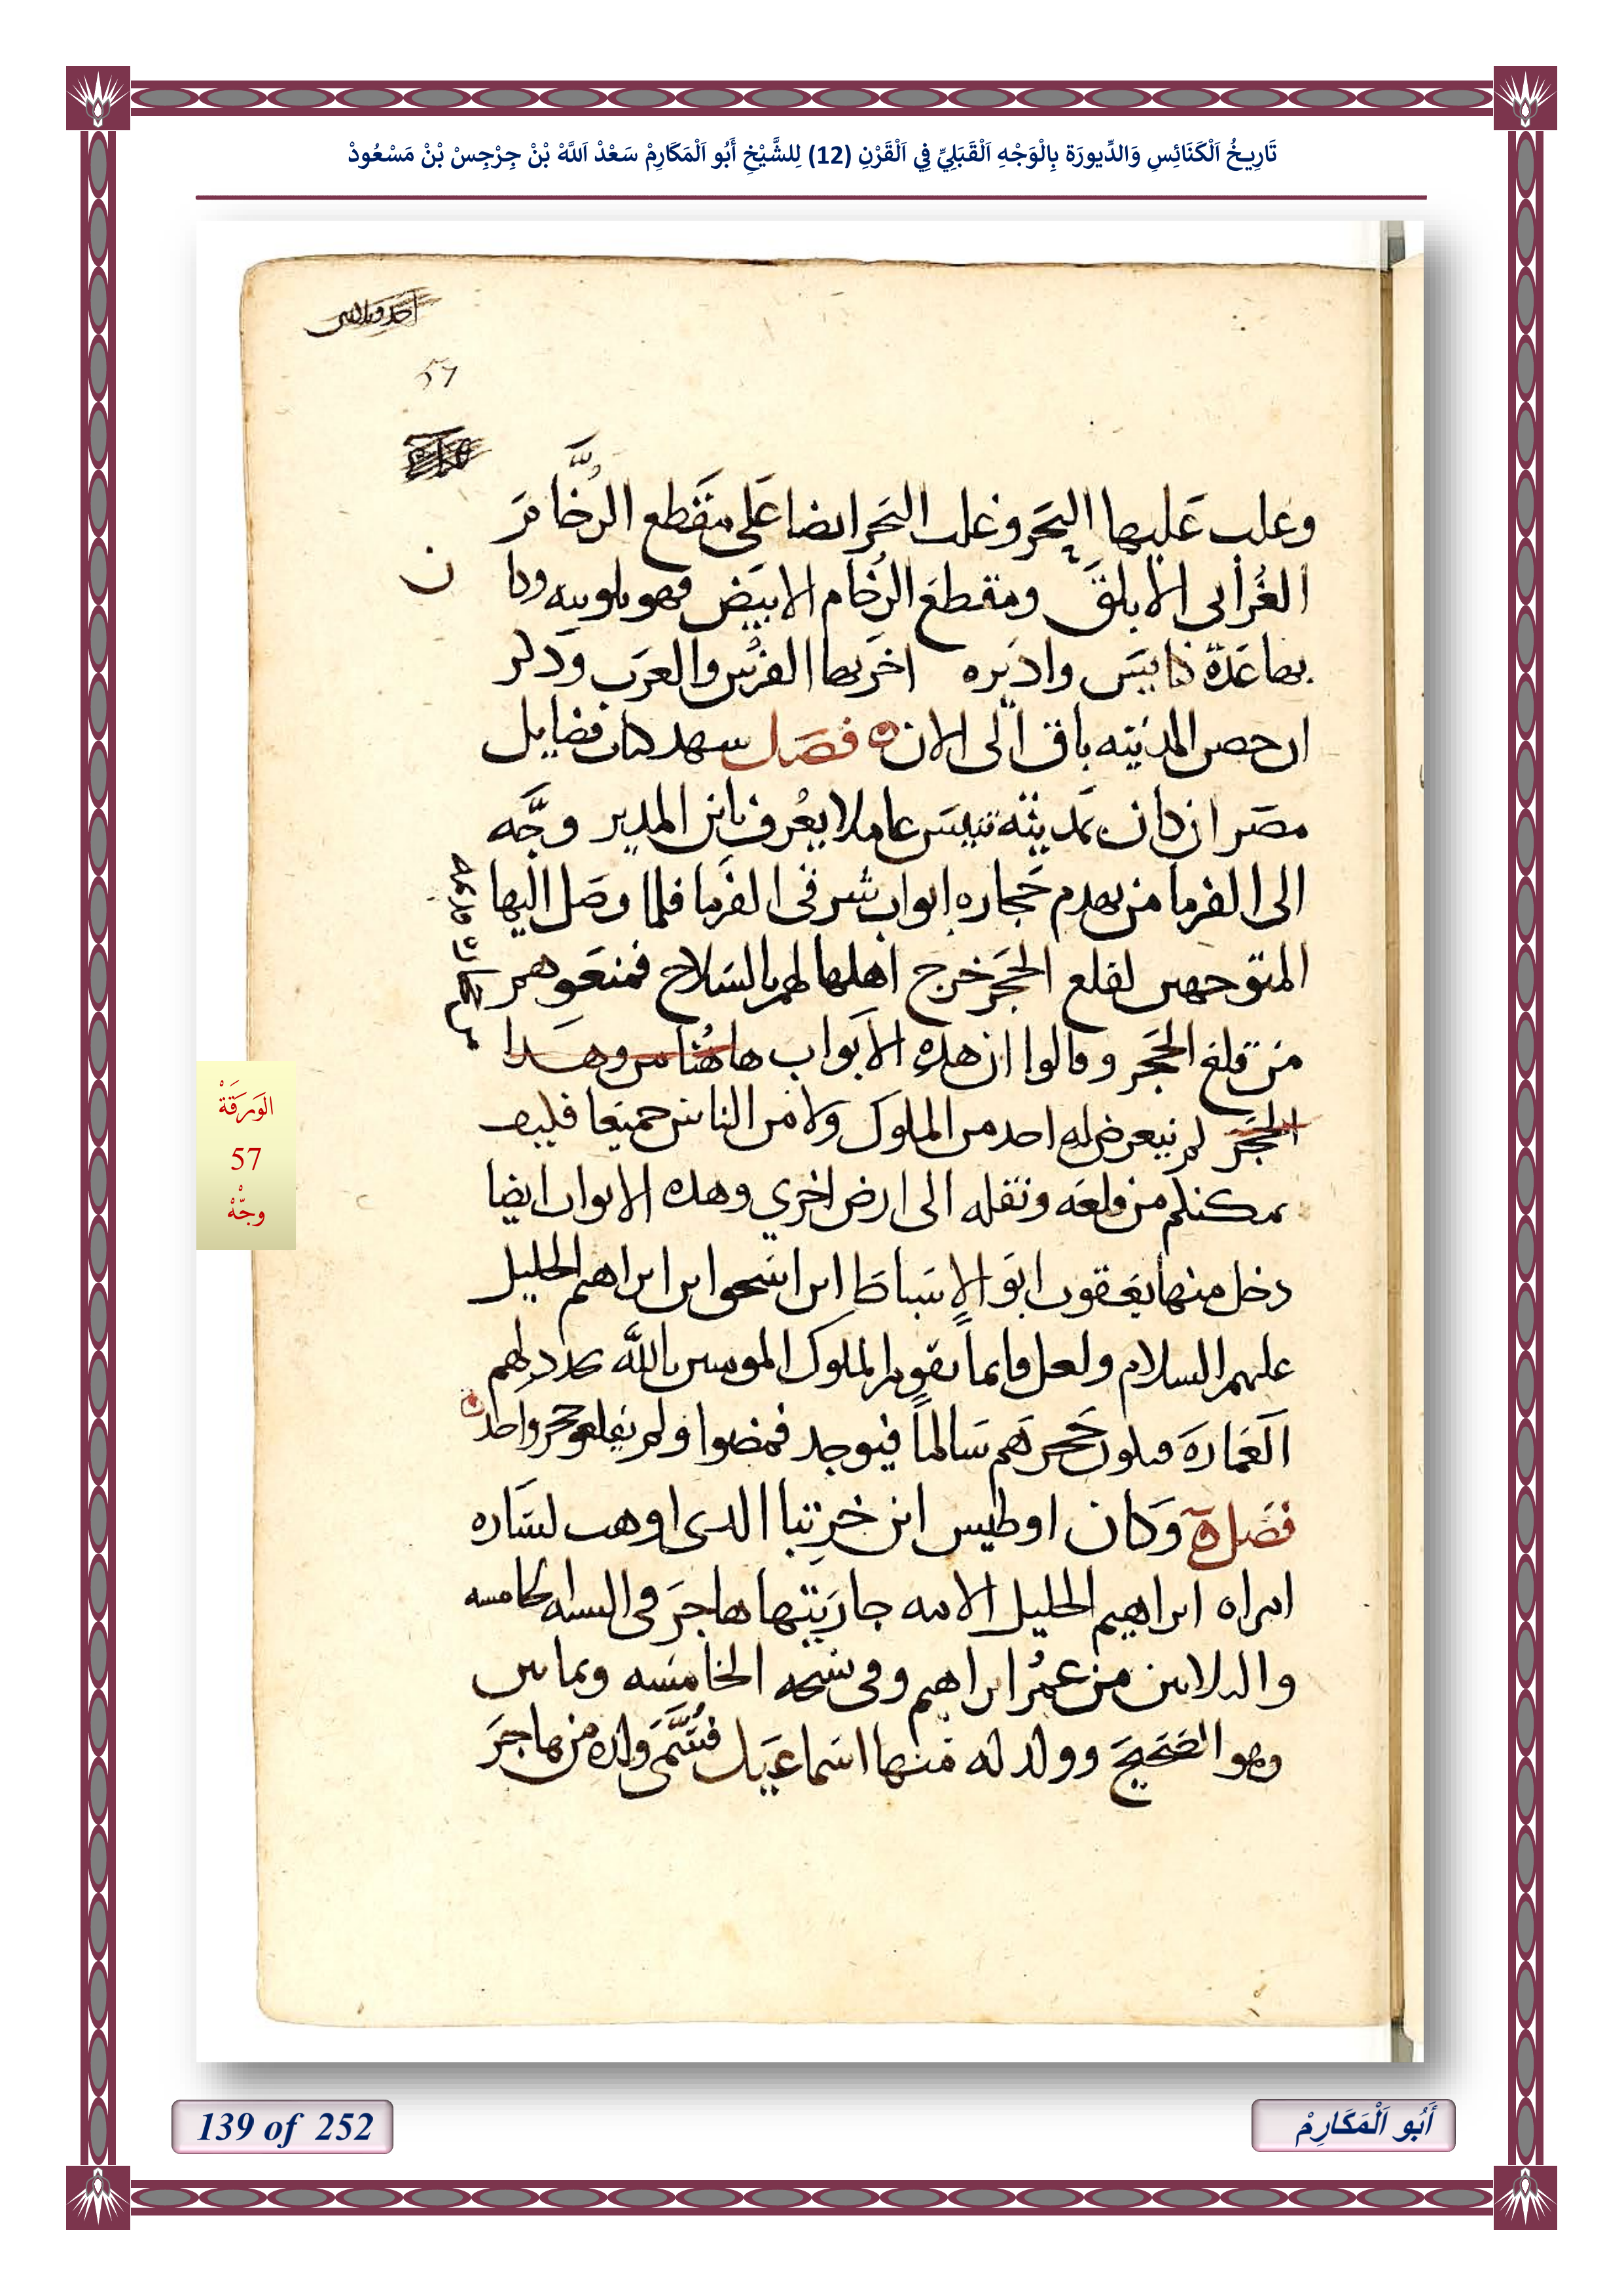 تَارِيخُ اَلْكَنَائِسِ وَالدِّيورَة بِالْوَجْهِ اَلْقَبَلِيِّ فِي اَلْقَرْنِ (12) لِلشَّيْخِ أَبُو اَلْمَكَارِمْ سَعْدْ اَللَّهْ بْنْ جِرْجِسْ بْنْ مَسْعُودْ
57
وغلب عَليها البحَر وغلب البَحر ايضا عَلى مقَطع الرُخَام
الغُرابى الابلقَ ومقطعَ الرُخام الابيَض فهو بلوبيه وكا
ن
بها عَدّة كنايسَ واديَره اخرَبها الفرُس والعرَب وَذكر
ان حصن المدينه باق الَى الان فصَل سهد كتاب فضايل
مصَر ان كان بمَدينة تنيسَ عاملا يعُرف بابن المدبر وجَّه
الى الفرما منَ يهدم حَجاره ابواب شرقى الفرَما فلما وصَل اليها
المتوجهين لقلع الحجَر خرج اهلها لهم بالسَلاح فمنعَوهم
منَ قلع الحجَر وقالوا ان هدهِ الابَواب هاهُنا من وهدا
الحجَر لم يتعرض له احد من الملوك ولا منَ الناس جميعَا فكيف
يمكنكم من قلعَه ونقله الى ارض اخري وهده الابواب ايضا
دخل منها يعَقوب ابوَ الاسَباط ابن اسَحق ابن ابراهيم الخليل
عليهم السلام ولعل قايما يقوم الملوك الموَمنين بالله يجدد لهم
العَمارهَ فيكون حَجرهَم سَالماً فيوجد فمضوا ولم يقلعو حجر واحد
فصَل وَكان اوطيس ابن خرِتبا الدى اوهب لسَاره
امراه ابراهيم الخليل الامه جارَيتها هاجرَ فى السنه الخامسه
والتلاتين منَ عمُر ابراهيم وفى نسَخه الخامسَه وتمانين
وهو الصَحيح وولد له منها اسَماعيَل فتسَمَّى ولده من هاجَرَ
الوَرَقَةْ
57
وجّهْ
139 of 252
أَبُو اَلْمَكَارِمْ